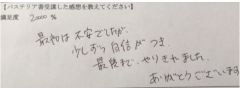 【パステリア書受講した感想を教えてください】
満足度 20000 %
最初は不安でしたが、
少しずつ自信がつき、
最後まで、やりきれました。
ありがとうございます